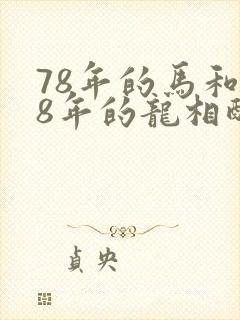 78年的馬和
8年的龍相
貞央